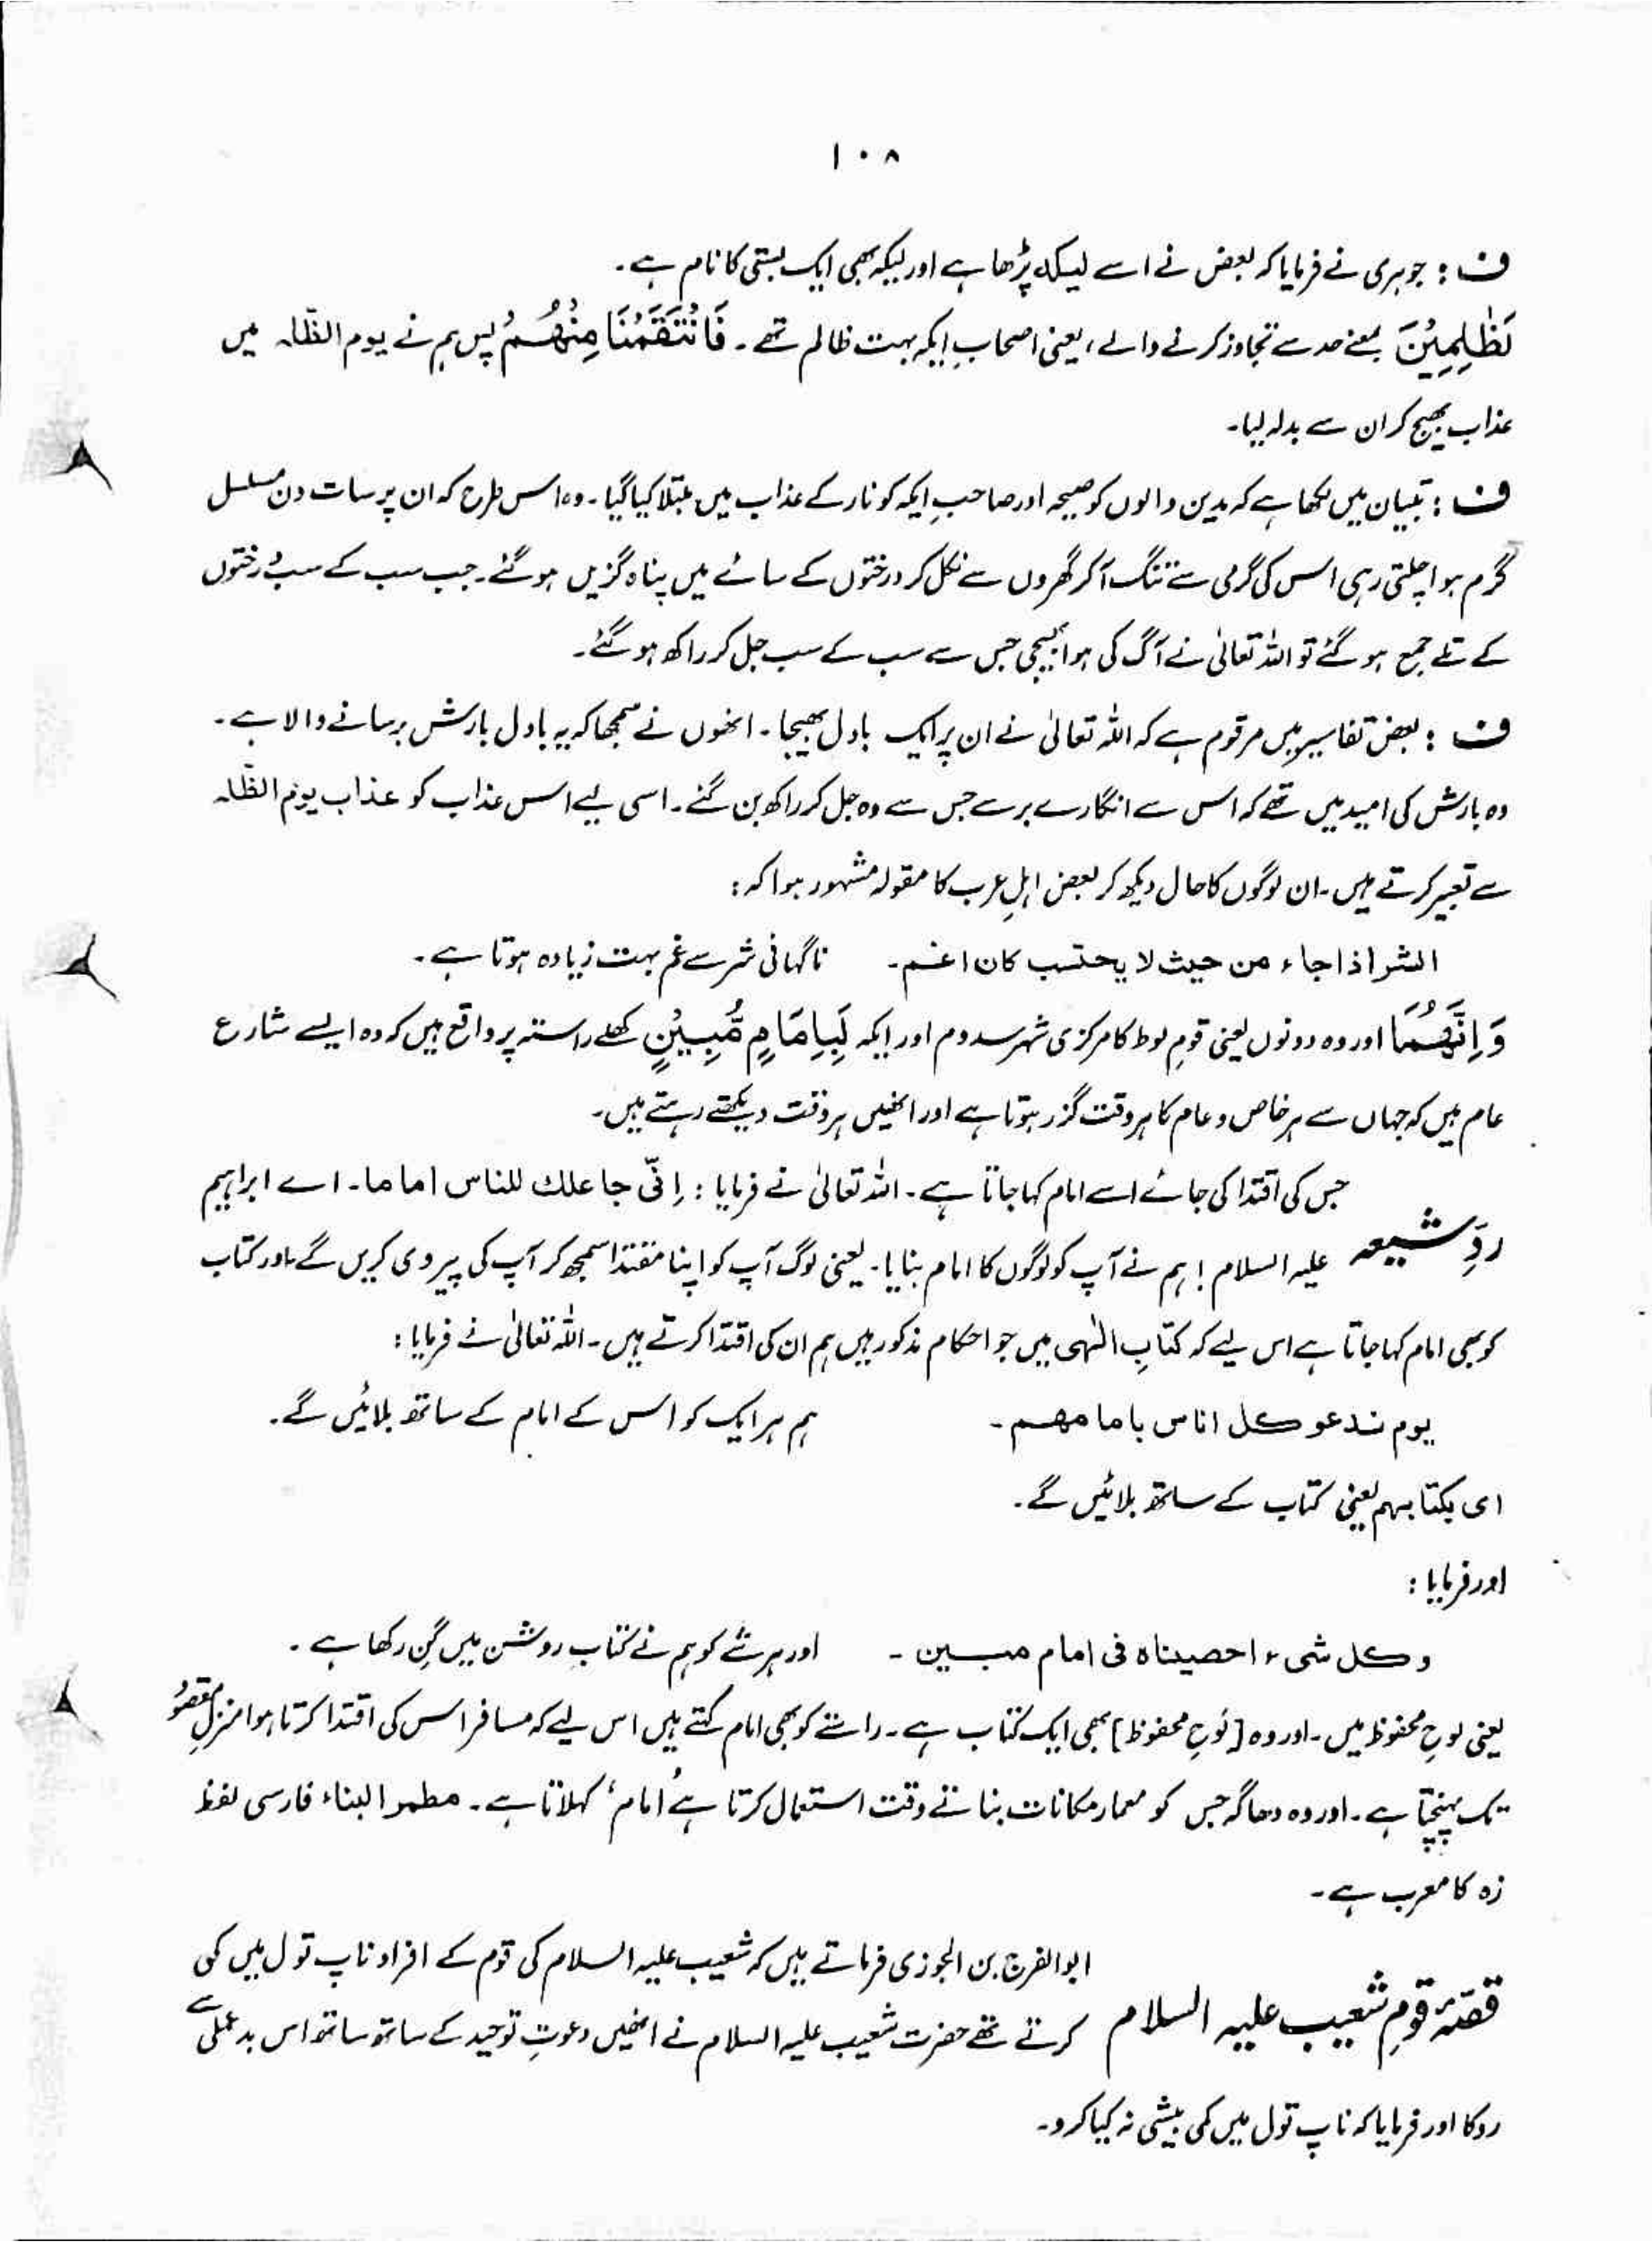 ۱۰۸
ف : جوہری نے فرمایا کہ بعض نے اسے لیکہ پڑھا ہے اور لیکہ بھی ایک بستی کا نام ہے۔
لَظٰلِمِیْنَ بمعنے حد سے تجاوز کرنے والے، یعنی اصحابِ ایکہ بہت ظالم تھے۔ فَانْتَقَمْنَا مِنْھُمْ پس ہم نے یوم الظّلہ میں
عذاب بھیج کر ان سے بدلہ لیا۔
ف : تبیان میں لکھا ہے کہ مدین والوں کو صیحہ اور صاحبِ ایکہ کو نار کے عذاب میں مبتلا کیا گیا۔ وہ اس طرح کہ ان پر سات دن مسلسل
گرم ہوا چلتی رہی اس کی گرمی سے تنگ آ کر گھروں سے نکل کر درختوں کے سائے میں پناہ گزیں ہو گئے۔ جب سب کے سب درختوں
کے تلے جمع ہو گئے تو اللہ تعالیٰ نے آگ کی ہوا بھیجی جس سے سب کے سب جل کر راکھ ہو گئے۔
ف : بعض تفاسیر میں مرقوم ہے کہ اللہ تعالیٰ نے ان پر ایک بادل بھیجا۔ انھوں نے سمجھا کہ یہ بادل بارش برسانے والا ہے۔
وہ بارش کی امید میں تھے کہ اس سے انگارے برسے جس سے وہ جل کر راکھ بن گئے۔ اسی لیے اس عذاب کو عذاب یوم الظّلہ
سے تعبیر کرتے ہیں۔ ان لوگوں کا حال دیکھ کر بعض اہلِ عرب کا مقولہ مشہور ہوا کہ :
الشر اذا جاء من حیث لا یحتسب کان اغم۔ ناگہانی شر سے غم بہت زیادہ ہوتا ہے۔
وَاِنَّھُمَا اور وہ دونوں یعنی قومِ لوط کا مرکزی شہر سدوم اور ایکہ لَبِاِمَامٍ مُّبِیْنٍ کھلے راستہ پر واقع ہیں کہ وہ ایسے شارع
عام ہیں کہ جہاں سے ہر خاص و عام کا ہر وقت گزر ہوتا ہے اور انھیں ہر وقت دیکھتے رہتے ہیں۔
جس کی اقتدا کی جائے اسے امام کہا جاتا ہے۔ اللہ تعالیٰ نے فرمایا : اِنّی جاعلک للناس اماما۔ اے ابراہیم
ردِّ شیعہ علیہ السلام ! ہم نے آپ کو لوگوں کا امام بنایا۔ یعنی لوگ آپ کو اپنا مقتدا سمجھ کر آپ کی پیروی کریں گے۔ اور کتاب
کو بھی امام کہا جاتا ہے اس لیے کہ کتابِ الٰہی میں جو احکام مذکور ہیں ہم ان کی اقتدا کرتے ہیں۔ اللہ تعالیٰ نے فرمایا :
یوم ندعو کل اناس بامامھم۔ ہم ہر ایک کو اس کے امام کے ساتھ بلائیں گے۔
ای بکتابہم یعنی کتاب کے ساتھ بلائیں گے۔
اور فرمایا :
وکل شیء احصیناہ فی امام مبین۔ اور ہر شے کو ہم نے کتابِ روشن میں گِن رکھا ہے۔
یعنی لوحِ محفوظ میں۔ اور وہ [لوحِ محفوظ] بھی ایک کتاب ہے۔ راستے کو بھی امام کہتے ہیں اس لیے کہ مسافر اس کی اقتدا کرتا ہوا منزلِ مقصود
تک پہنچتا ہے۔ اور وہ دھاگہ جس کو معمار مکانات بناتے وقت استعمال کرتا ہے ’امام‘ کہلاتا ہے۔ مطمر البناء فارسی لفظ
زہ کا معرب ہے۔
ابو الفرج بن الجوزی فرماتے ہیں کہ شعیب علیہ السلام کی قوم کے افراد ناپ تول میں کمی
قصّۂ قومِ شعیب علیہ السلام کرتے تھے حضرت شعیب علیہ السلام نے انھیں دعوتِ توحید کے ساتھ ساتھ اس بد عملی سے
روکا اور فرمایا کہ ناپ تول میں کمی بیشی نہ کیا کرو۔